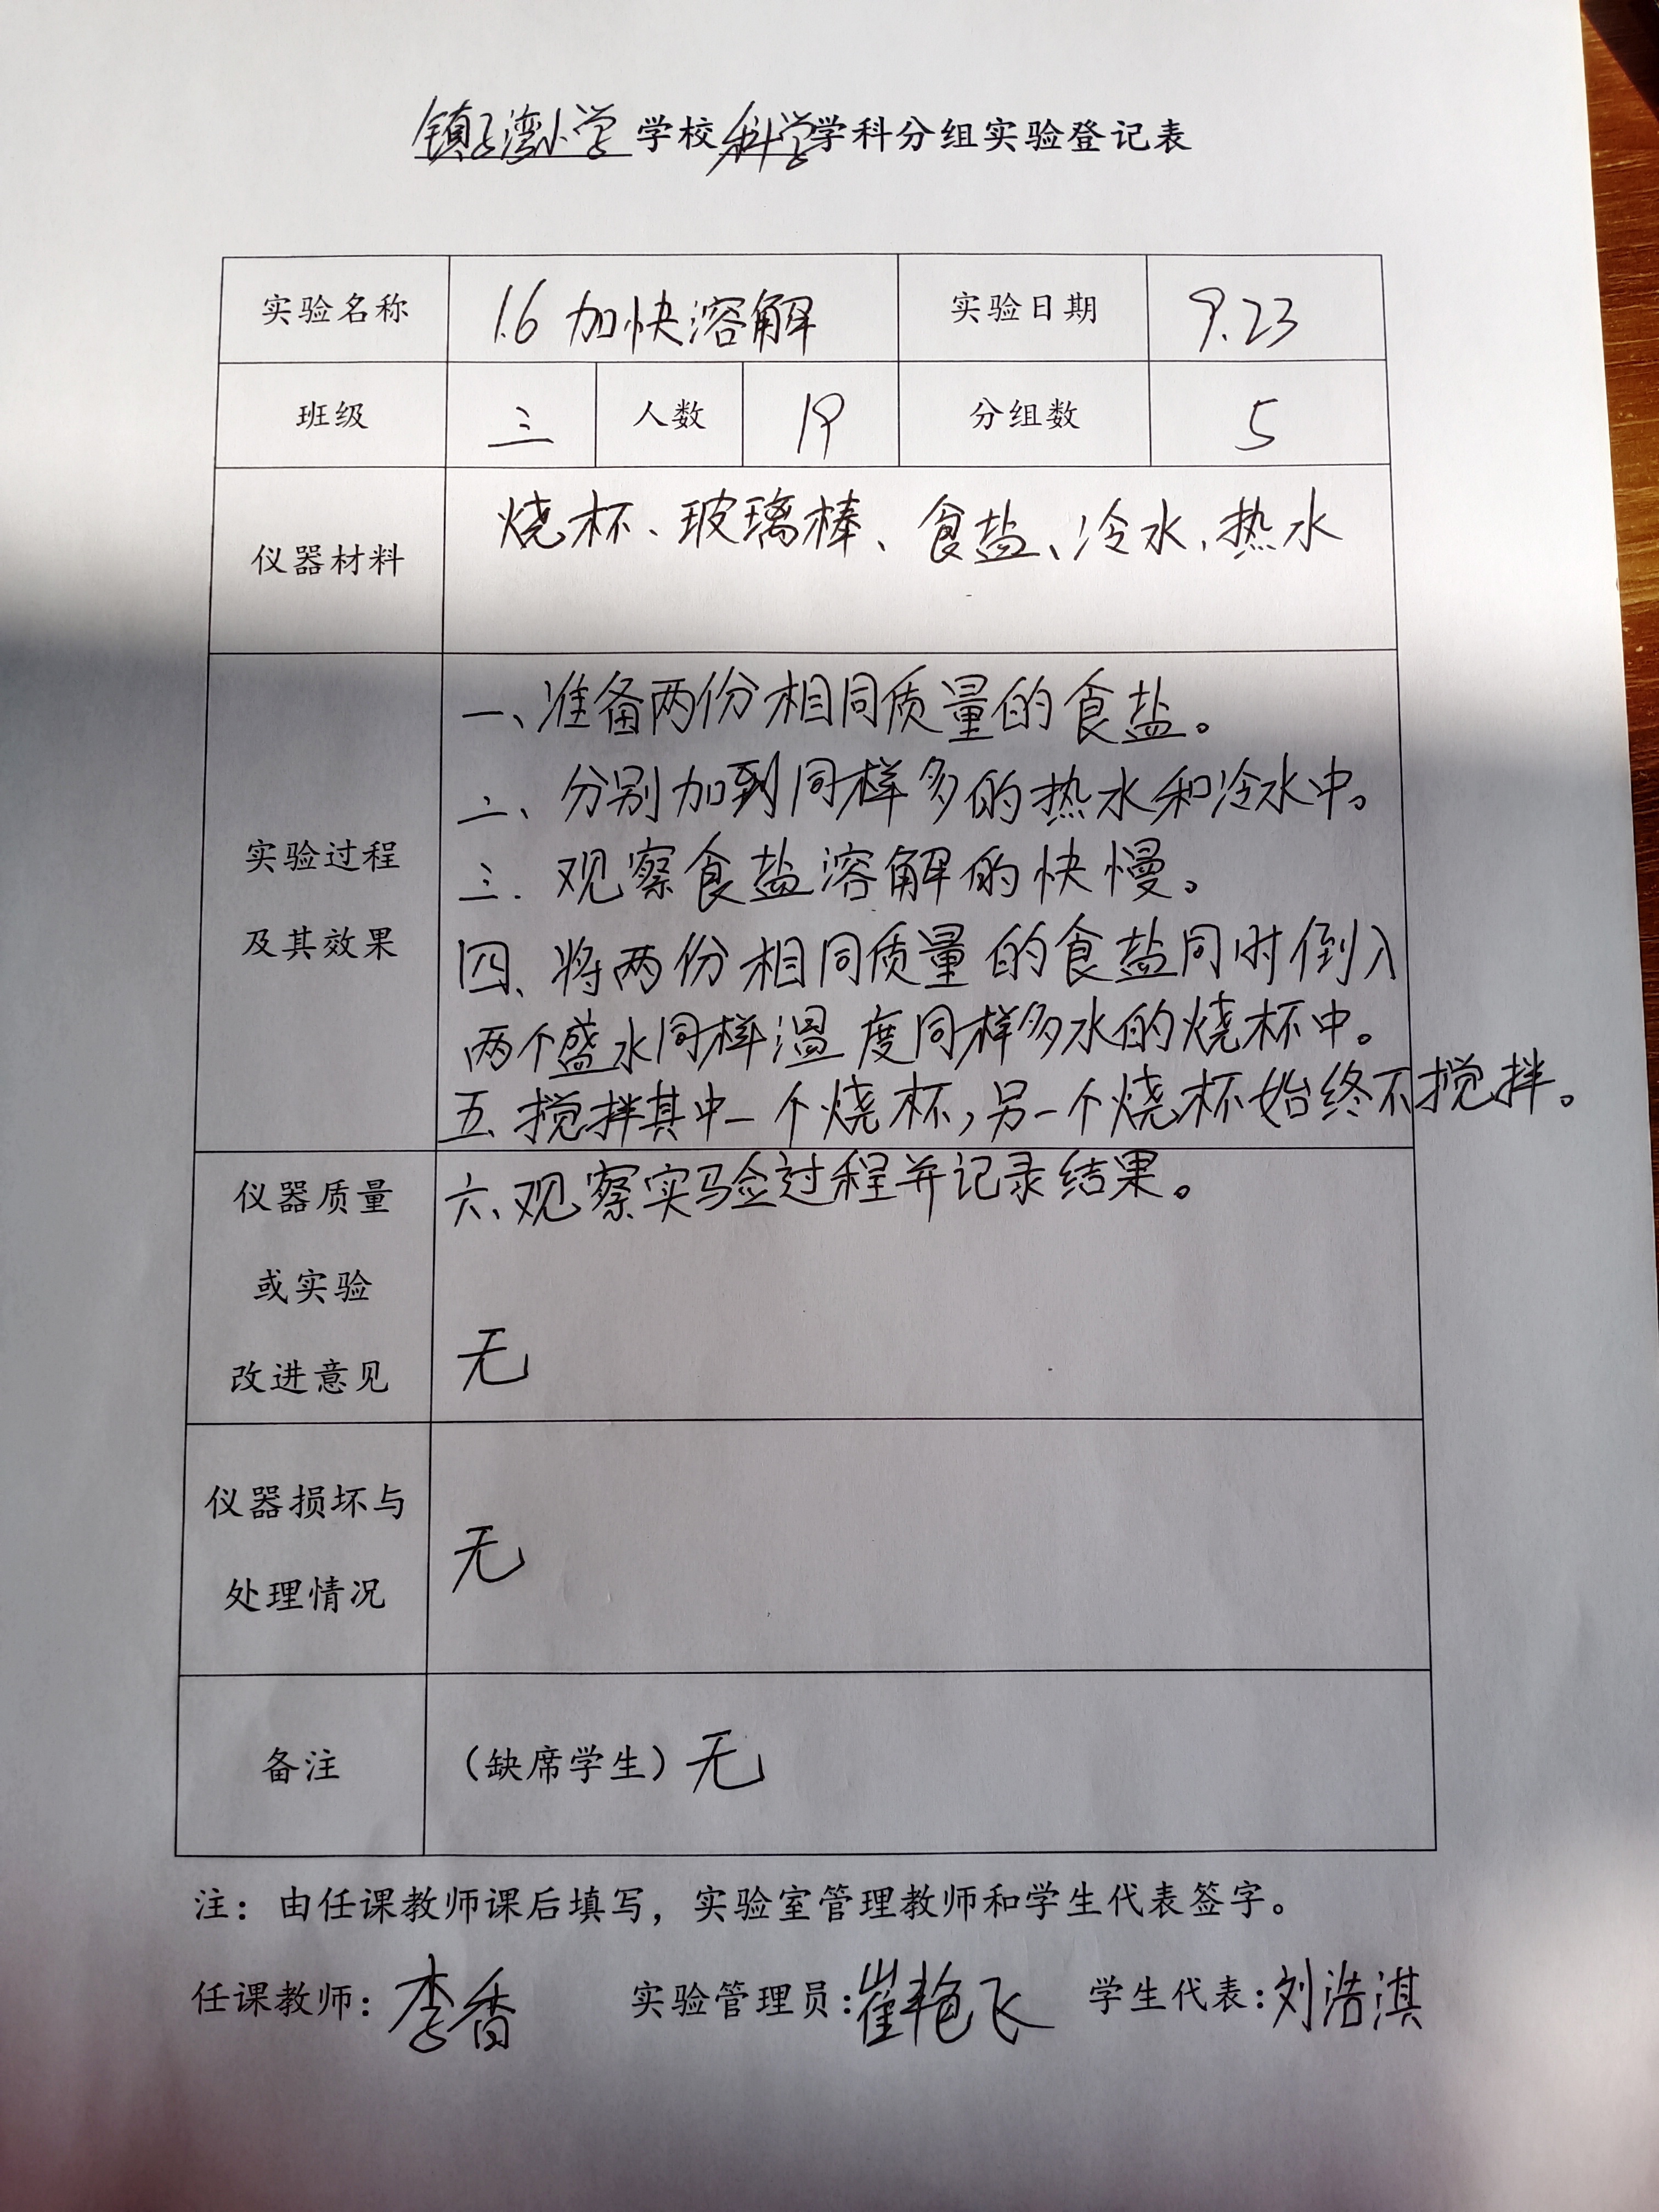 镇子湾小学 学校 科学 学科分组实验登记表
实验名称 1.6 加快溶解 实验日期 9.23
班级 三 人数 19 分组数 5
仪器材料 烧杯、玻璃棒、食盐、冷水、热水
实验过程
及其效果
一、准备两份相同质量的食盐。
二、分别加到同样多的热水和冷水中。
三、观察食盐溶解的快慢。
四、将两份相同质量的食盐同时倒入
两个盛水同样温度同样多水的烧杯中。
五、搅拌其中一个烧杯,另一个烧杯始终不搅拌。
六、观察实验过程并记录结果。
仪器质量
或实验
改进意见
无
仪器损坏与
处理情况
无
备注 (缺席学生) 无
注：由任课教师课后填写，实验室管理教师和学生代表签字。
任课教师：李香 实验管理员：崔艳飞 学生代表：刘浩淇